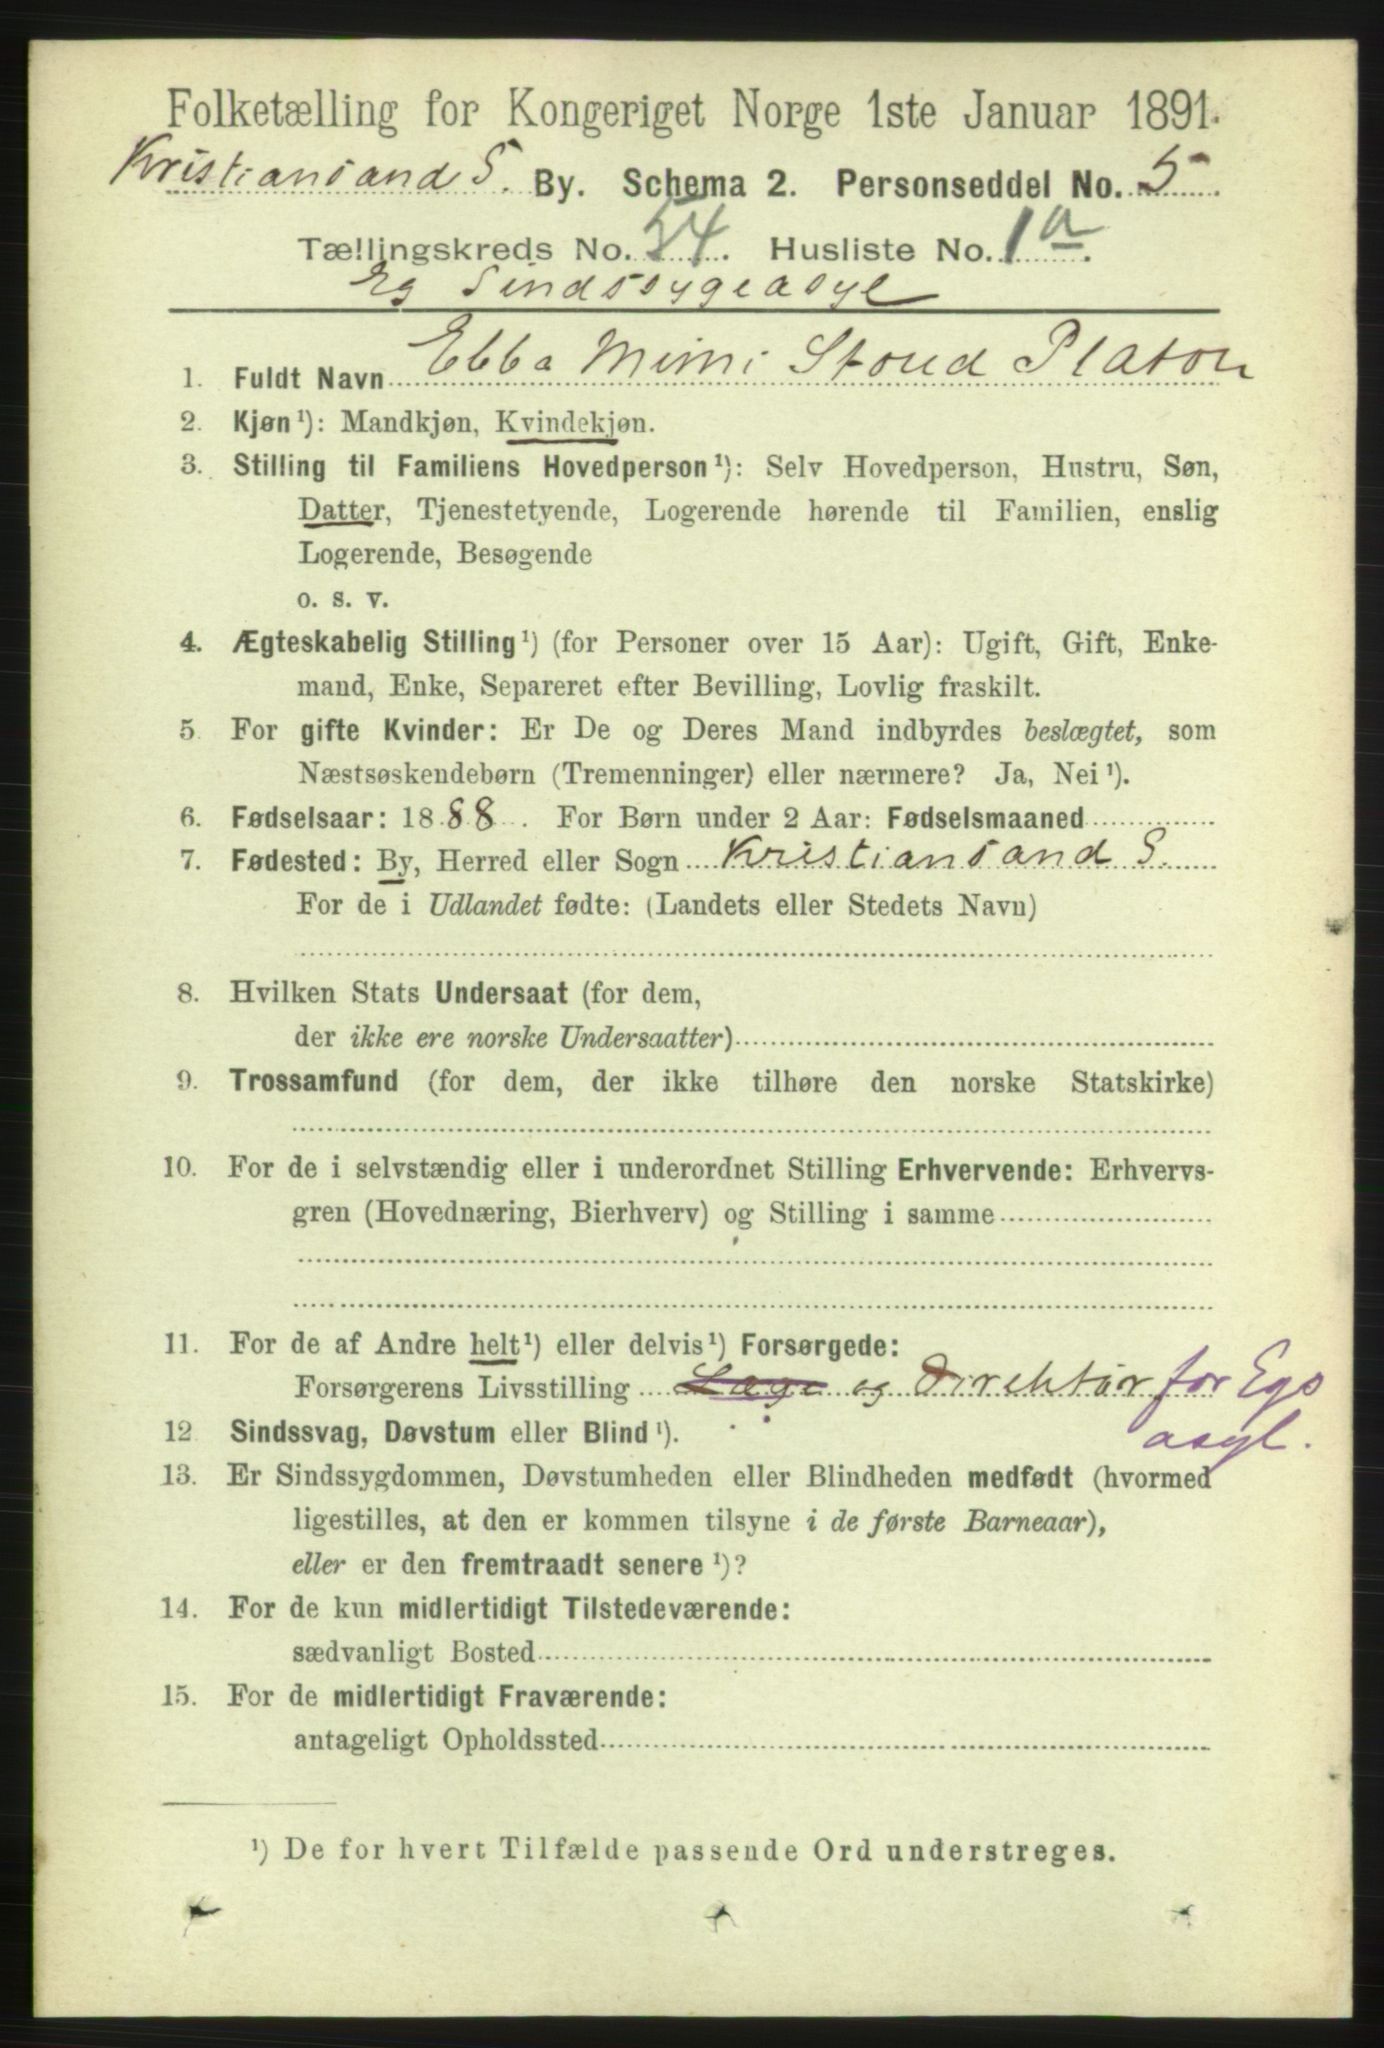 Folketælling for Kongeriget Norge 1ste Januar 1891.
Kristiansand S. By. Schema 2. Personseddel No. 5
Tællingskreds No. 54. Husliste No. 1 a.
Eg Sindssygeasyl
1. Fuldt Navn Ebba Mimi Stoud Platou
2. Kjøn¹): Mandkjøn, Kvindekjøn.
3. Stilling til Familiens Hovedperson¹): Selv Hovedperson, Hustru, Søn,
Datter, Tjenestetyende, Logerende hørende til Familien, enslig
Logerende, Besøgende
o. s. v.
4. Ægteskabelig Stilling¹) (for Personer over 15 Aar): Ugift, Gift, Enke-
mand, Enke, Separeret efter Bevilling, Lovlig fraskilt.
5. For gifte Kvinder: Er De og Deres Mand indbyrdes beslægtet, som
Næstsøskendebørn (Tremenninger) eller nærmere? Ja, Nei¹).
6. Fødselsaar: 1888. For Børn under 2 Aar: Fødselsmaaned
7. Fødested: By, Herred eller Sogn Kristiansand S.
For de i Udlandet fødte: (Landets eller Stedets Navn)
8. Hvilken Stats Undersaat (for dem,
der ikke ere norske Undersaatter)
9. Trossamfund (for dem, der ikke tilhøre den norske Statskirke)
10. For de i selvstændig eller i underordnet Stilling Erhvervende: Erhvervs-
gren (Hovednæring, Bierhverv) og Stilling i samme
11. For de af Andre helt¹) eller delvis¹) Forsørgede:
Forsørgerens Livsstilling Læge og Direktør for Egs
asyl.
12. Sindssvag, Døvstum eller Blind¹).
13. Er Sindssygdommen, Døvstumheden eller Blindheden medfødt (hvormed
ligestilles, at den er kommen tilsyne i de første Barneaar),
eller er den fremtraadt senere¹)?
14. For de kun midlertidigt Tilstedeværende:
sædvanligt Bosted
15. For de midlertidigt Fraværende:
antageligt Opholdssted
¹) De for hvert Tilfælde passende Ord understreges.